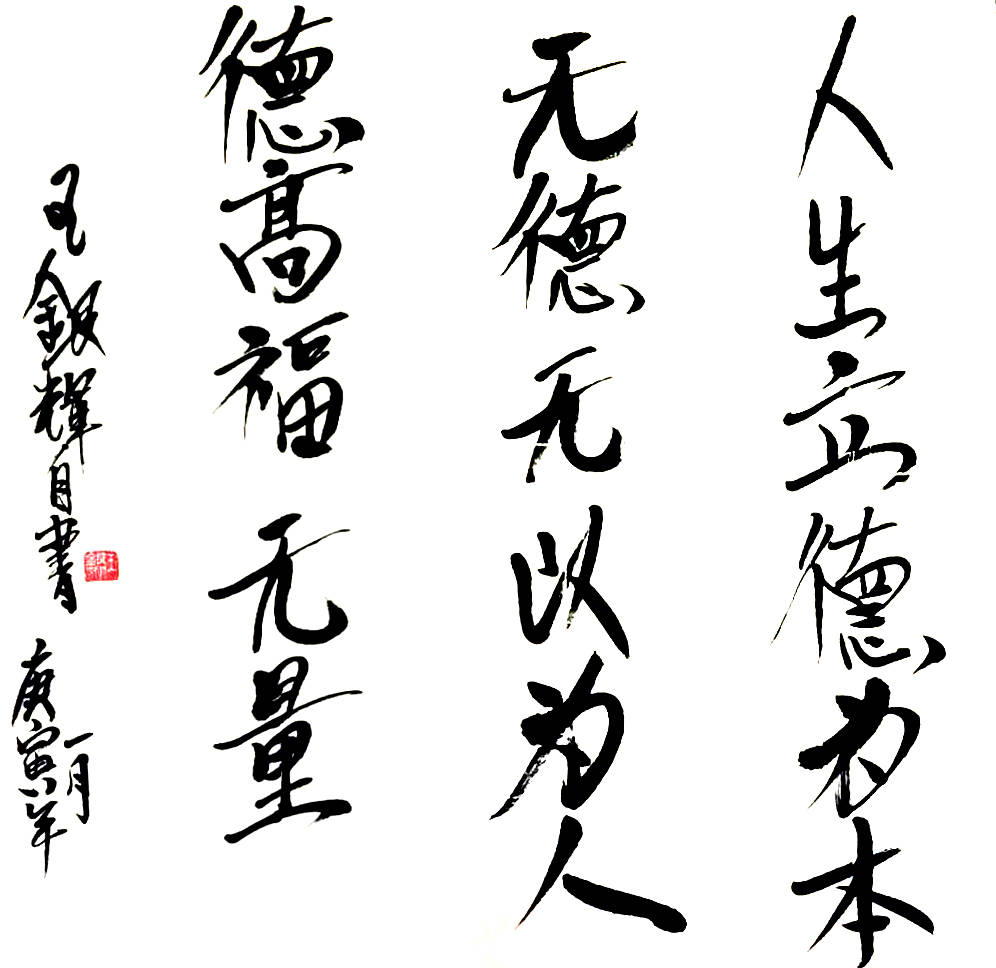 人生立德为本
无德无以为人
德高福无量
王銀輝自書
庚寅年
一月